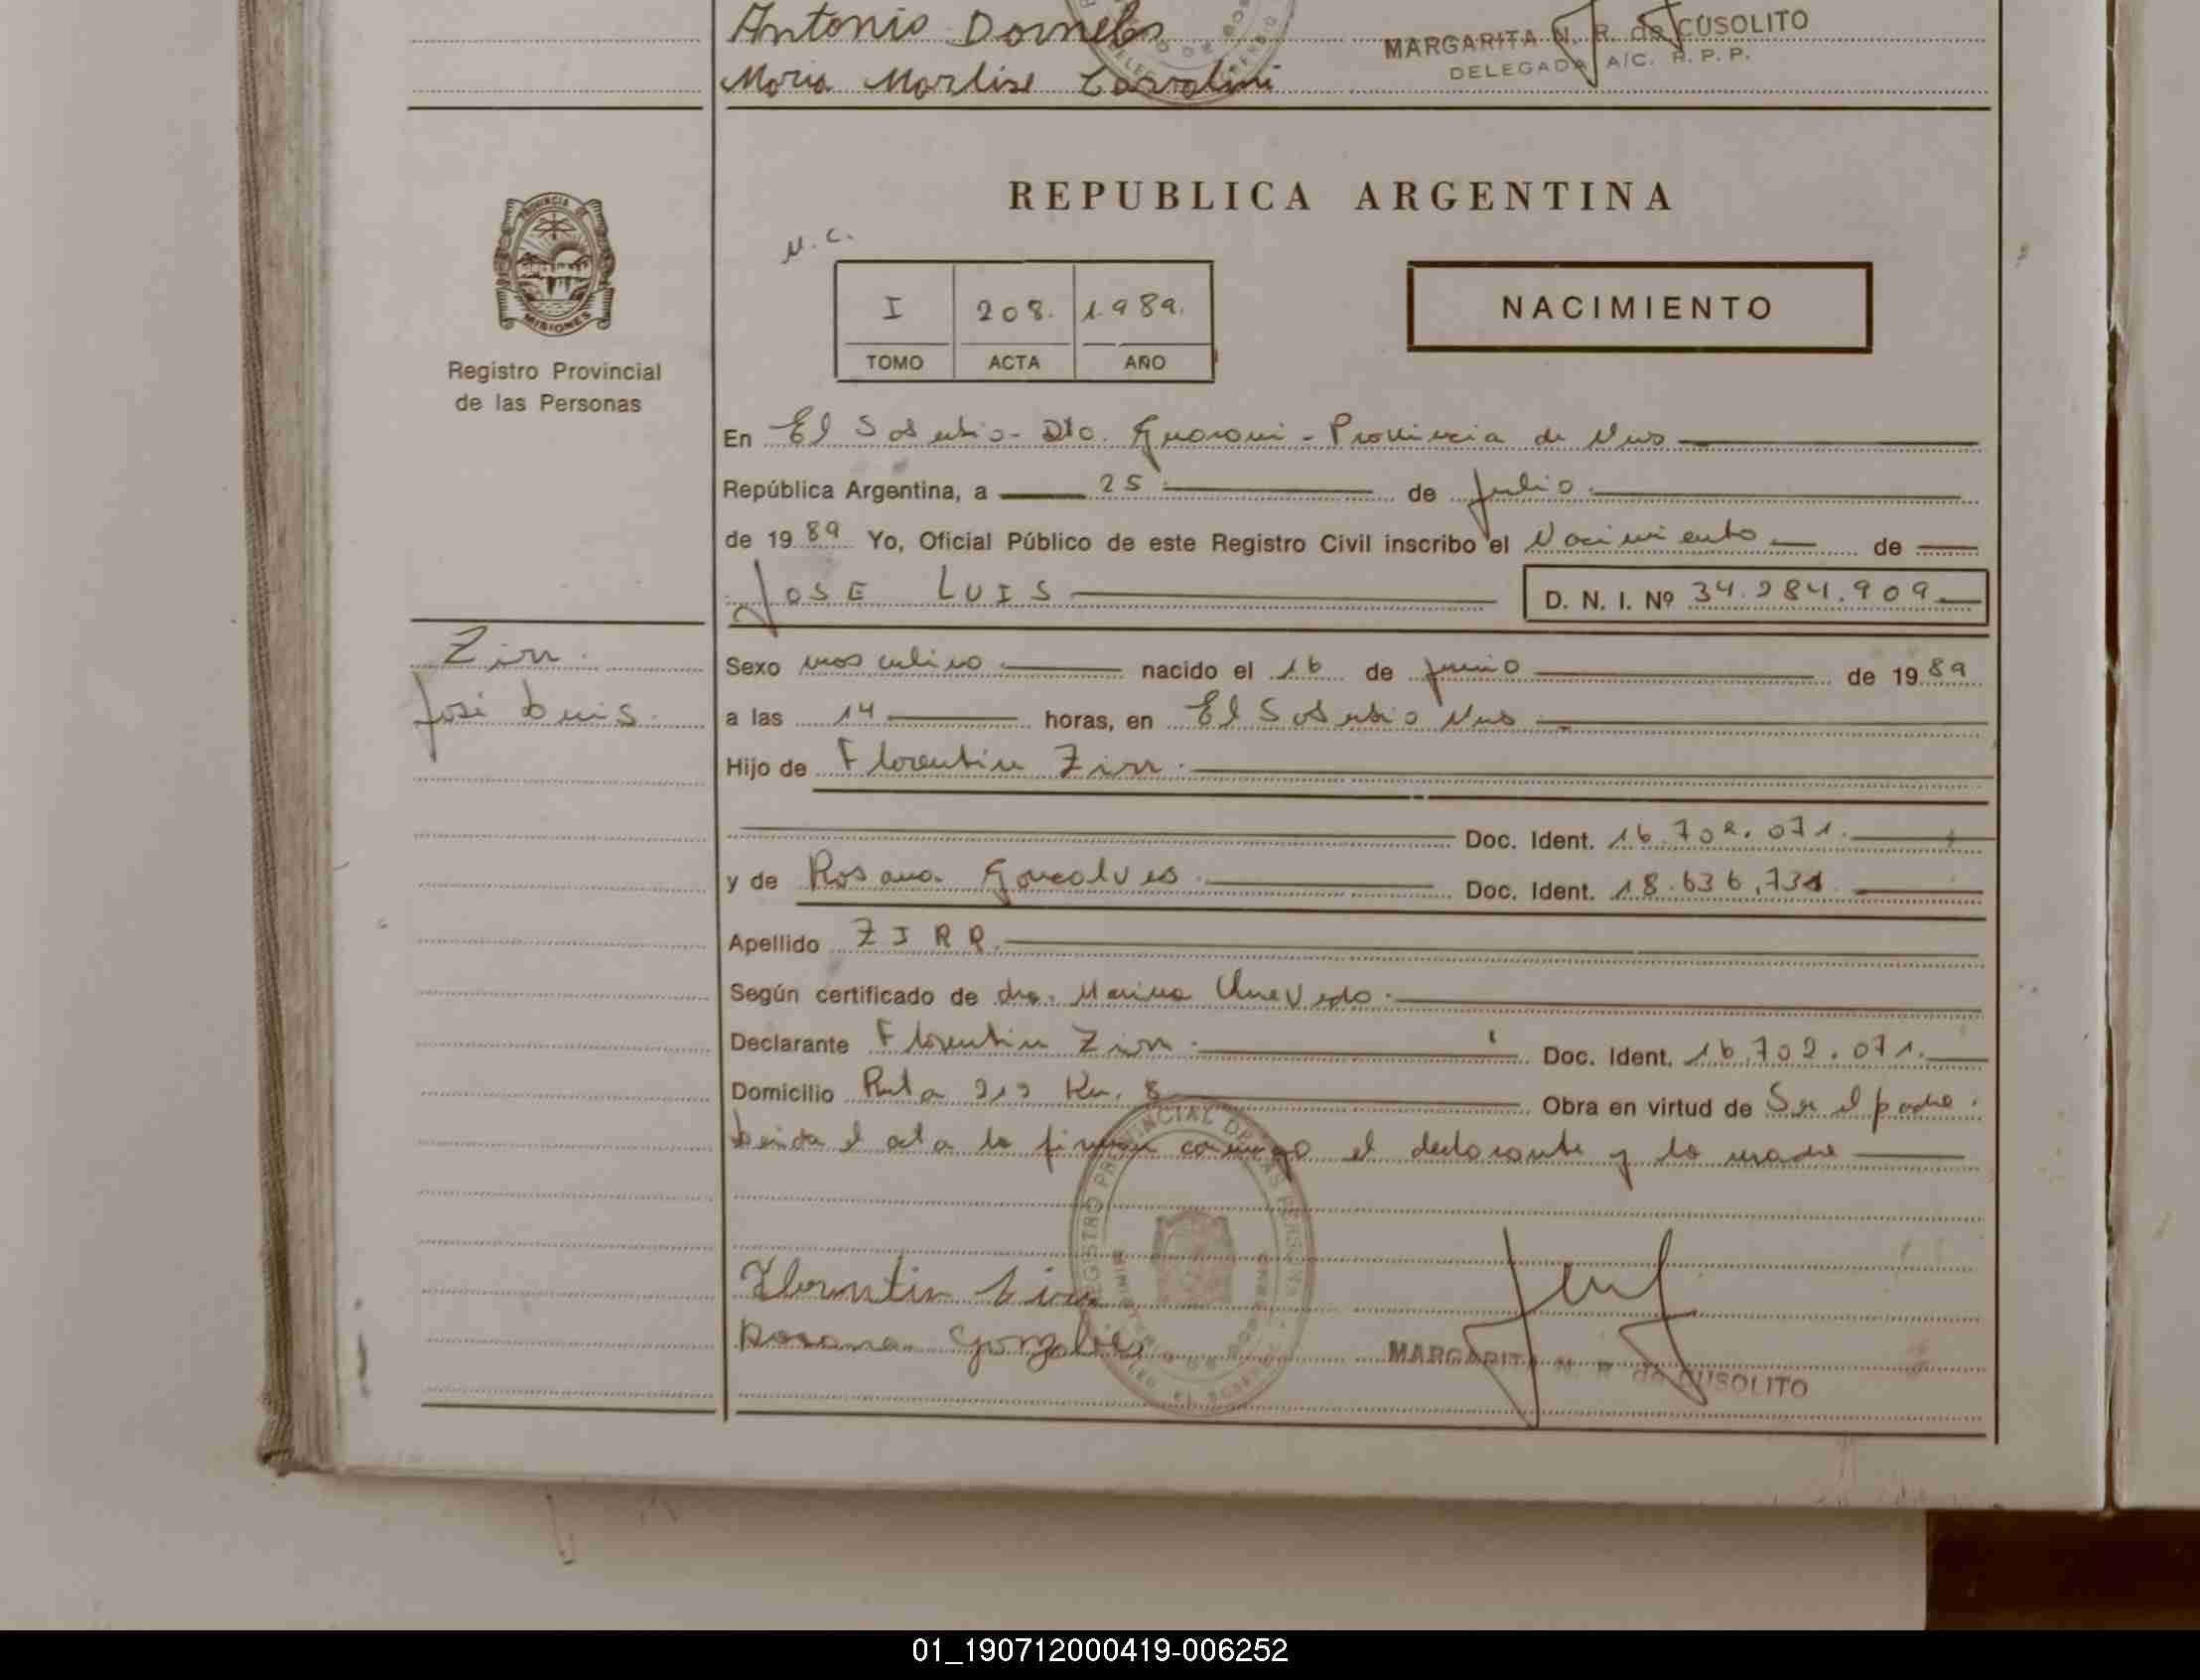 Antonio Dornelos
MARGARITA N. R. de CUSOLITO
DELEGADA A/C. R. P. P.
Maria Marlise
REPUBLICA ARGENTINA
PROVINCIA DE
MISIONES
Registro Provincial
de las Personas
N.C.
I 208. 1.989.
TOMO ACTA AÑO
NACIMIENTO
En El Soberbio - Dto. Guarani - Provincia de Mns
República Argentina, a 25 de Julio
de 19 89 Yo, Oficial Público de este Registro Civil inscribo el Nacimiento de
JOSE LUIS D. N. I. Nº 34.284.909
Zirr.
José Luis.
Sexo masculino nacido el 16 de junio de 19 89
a las 14 horas, en El Soberbio Mns
Hijo de Florentin Zirr.
Doc. Ident. 16.702.071.
y de Rosana Goncalves. Doc. Ident. 18.636.731.
Apellido ZIRR.
Según certificado de dra. Marina
Declarante Florentin Zirr. Doc. Ident. 16.702.071.
Domicilio Ruta 212 Km. 8 Obra en virtud de Ser el padre.
Leida el acta la firman conmigo el declarante y la madre
REGISTRO PROVINCIAL DE LAS PERSONAS
Florentin Zirr
Rosana Gonzalves
MARGARITA N. R. de CUSOLITO
01_190712000419-006252